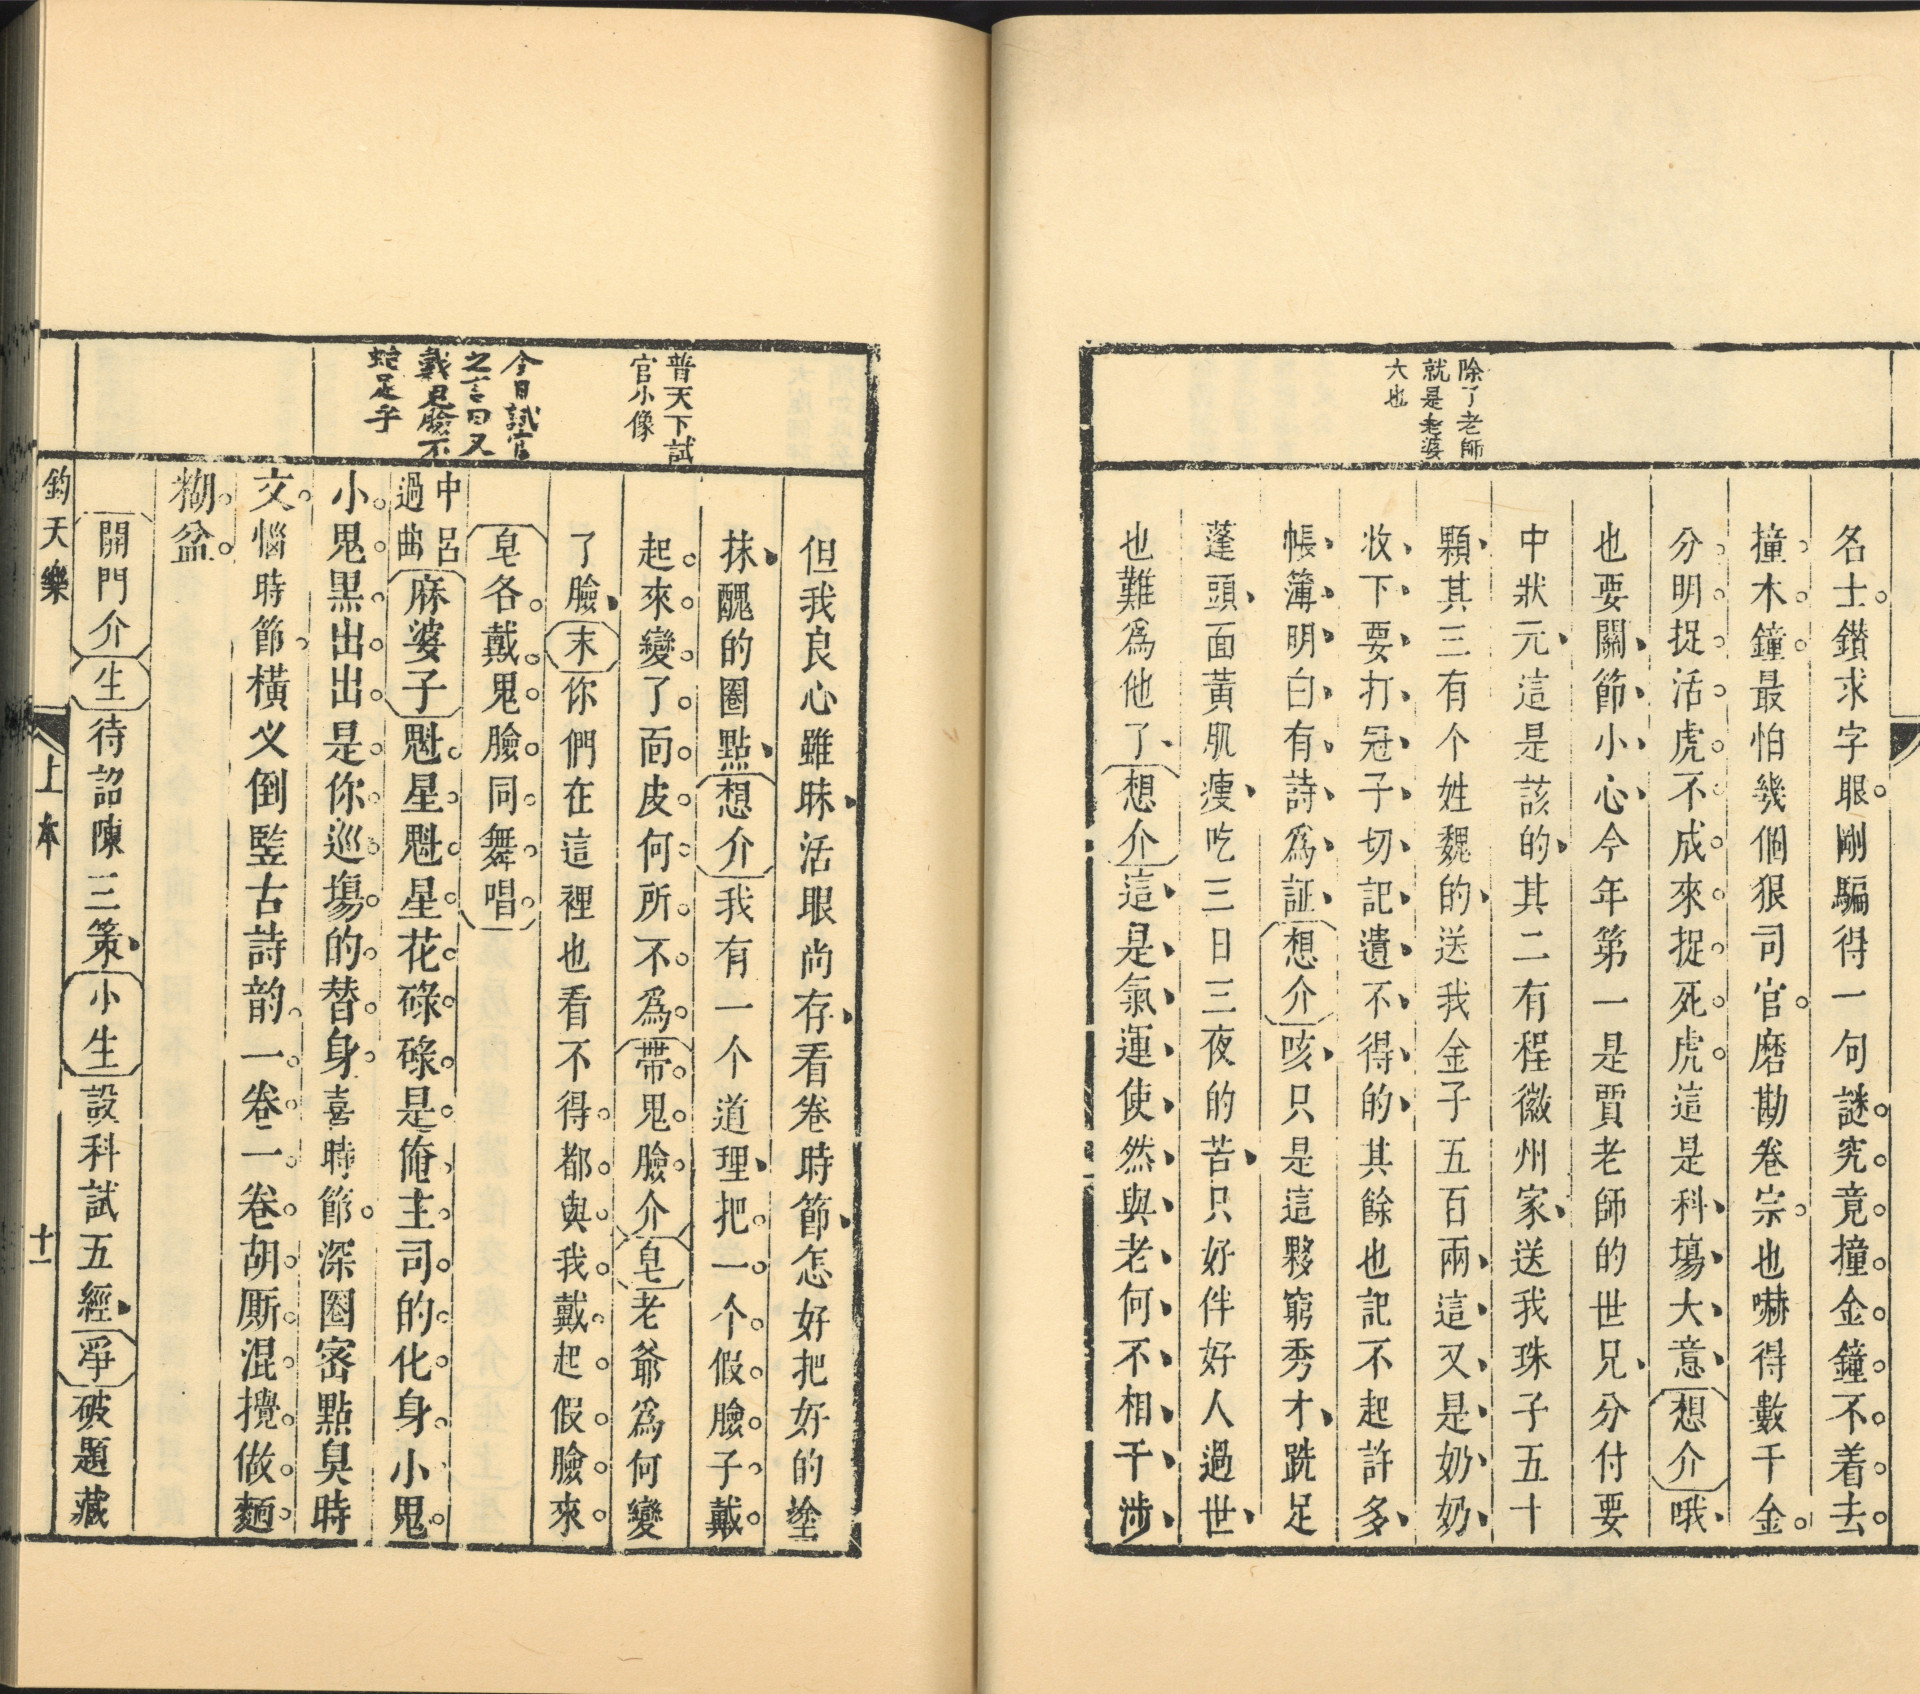 除了老師
就是老婆
大也
名士鑚求字眼剛騙得一句謎究竟撞金鐘不着去
撞木鐘最怕幾個狠司官磨勘卷宗也嚇得數千金
分明捉活虎不成來捉死虎這是科塲大意想介哦
也要關節小心今年第一是賈老師的世兄分付要
中狀元這是該的其二有程徽州家送我珠子五十
顆其三有个姓魏的送我金子五百兩這又是奶奶
收下要打冠子切記遺不得的其餘也記不起許多
帳簿明白有詩爲証想介咳只是這夥窮秀才跣足
蓬頭面黃肌瘦吃三日三夜的苦只好伴好人過世
也難爲他了想介這是氣運使然與老何不相干涉
普天下試
官小像
今日試官
之言曰又
戴鬼臉不
蛇足乎
但我良心雖昧活眼尚存看卷時節怎好把好的塗
抹醜的圈點想介我有一个道理把一个假臉子戴
起來變了面皮何所不爲帶鬼臉介皂老爺爲何變
了臉末你們在這裡也看不得都與我戴起假臉來
皂各戴鬼臉同舞唱
中呂
過曲
麻婆子魁星魁星花碌碌是俺主司的化身小鬼
小鬼黑出出是你巡塲的替身喜時節深圈密點臭時
文惱時節橫义倒竪古詩韵一卷二卷胡厮混攪做麵
糊盆
開門介生待詔陳三策小生設科試五經淨破題藏
鈞天樂
上本
十一